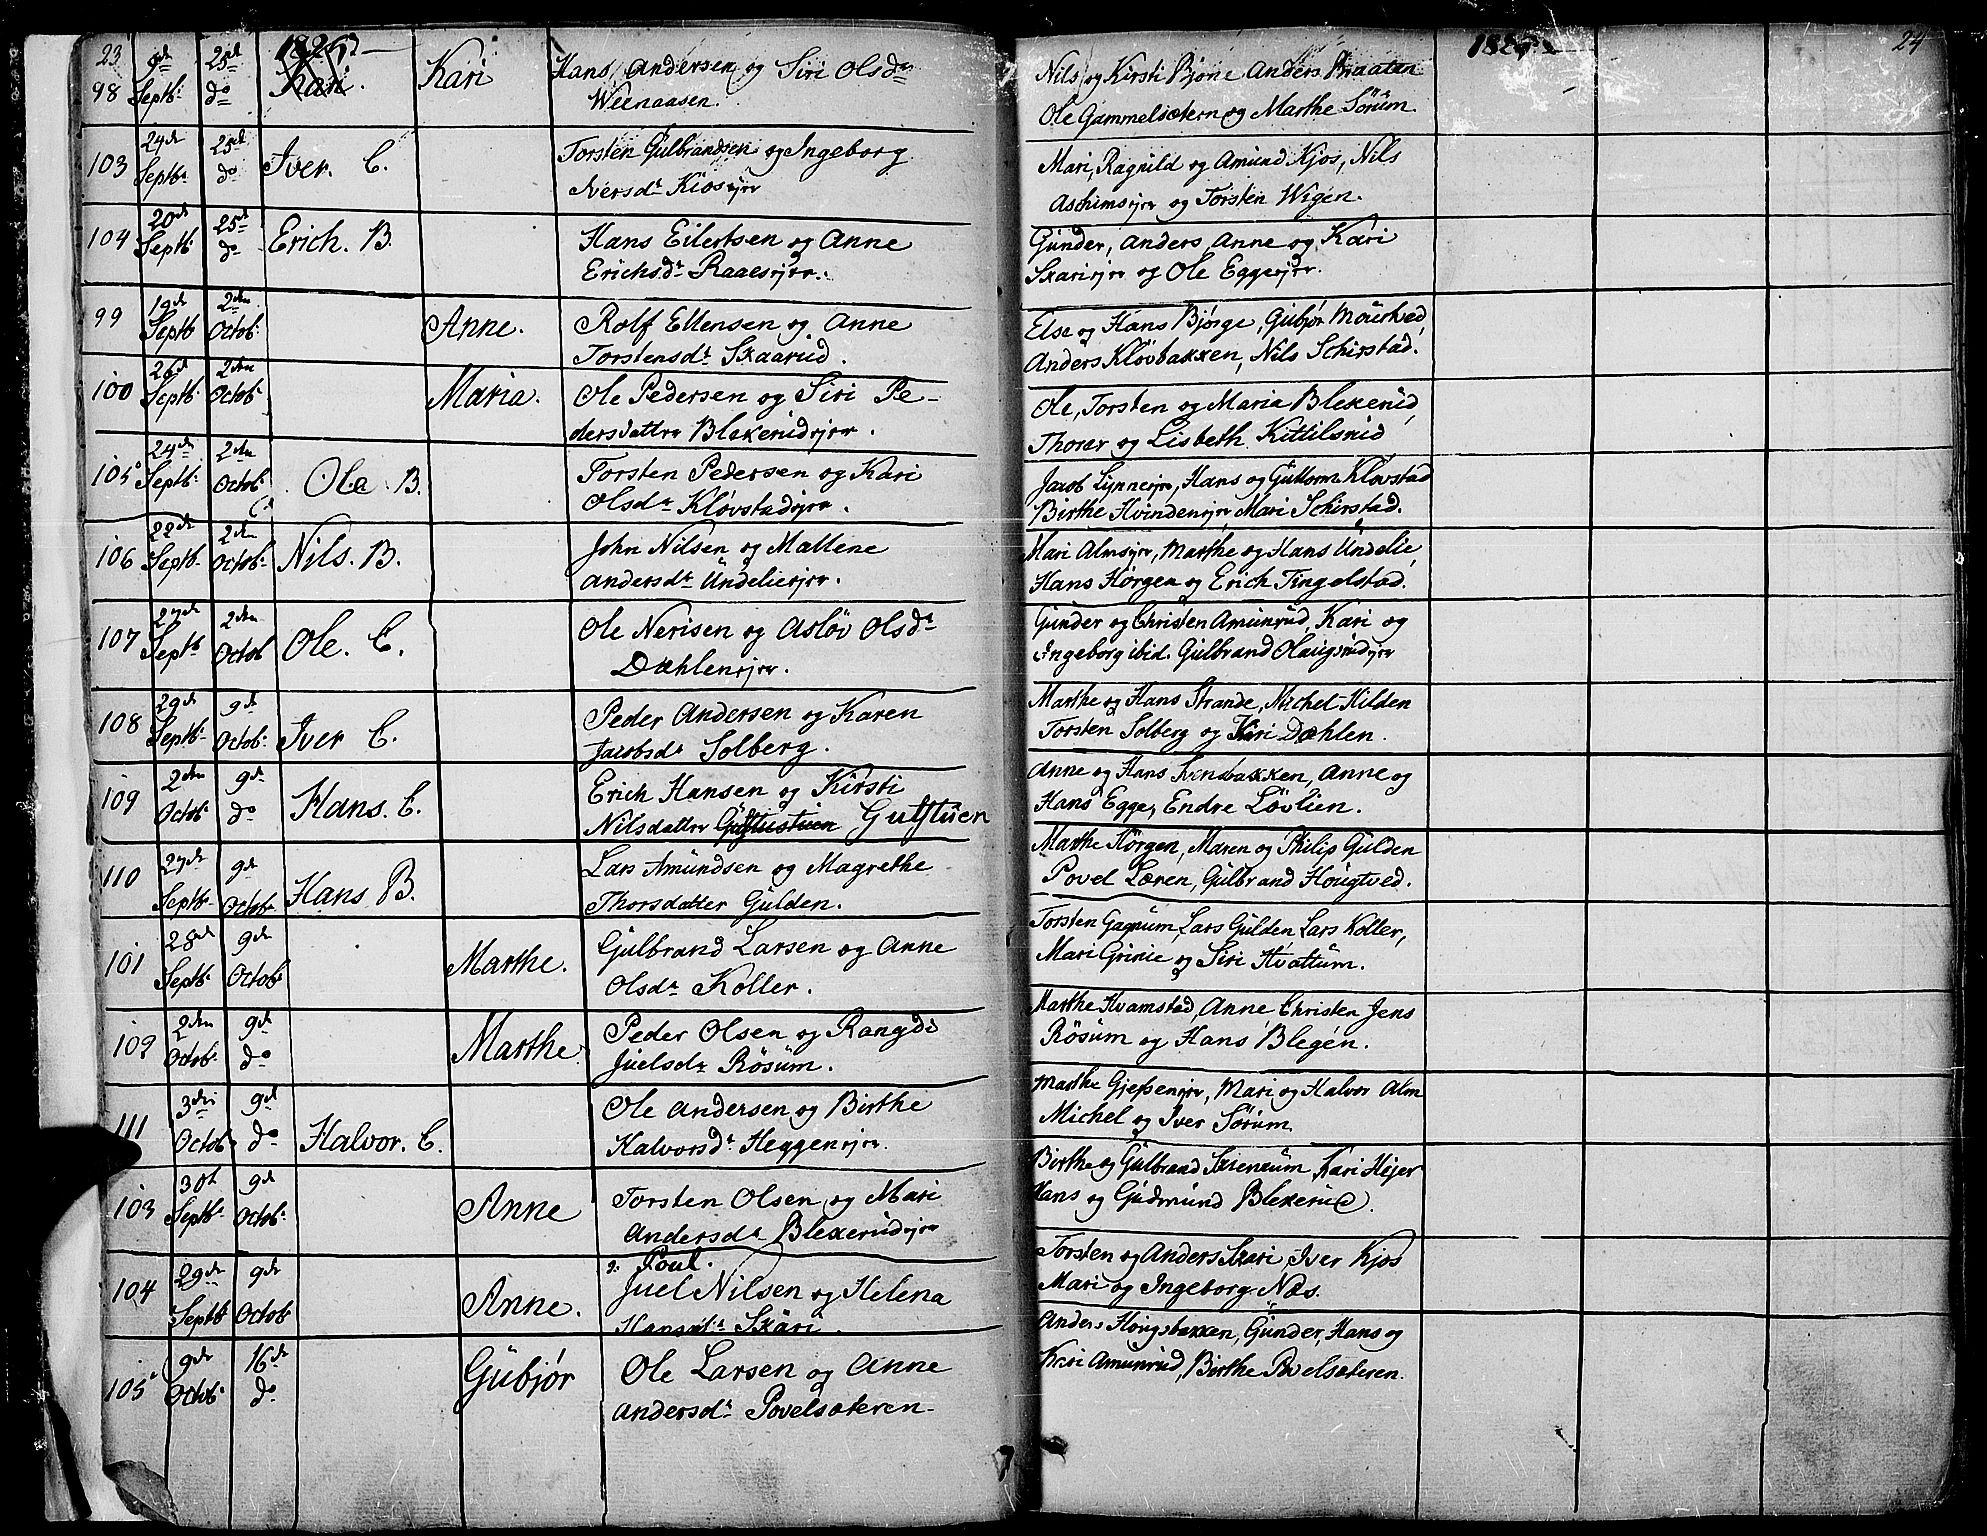 23 1825 1825 24
98 9de Septb: 25de do Kari. Kari Hans Andersen og Siri Olsdr
Weenaasen. Nils og Kirsti Bjone Anders Braaten
Ole Gammelsætern og Marthe Sörum.
103 24de Septbr 25de do Iver. C. Torsten Gulbrandsen og Ingeborg
Iversdr Kiosejer Mari, Ragnild og Amund Kjos, Nils
Aschimsejer og Torsten Wigen.
104 20de Septb: 25de do Erich. B. Hans Eilertsen og Anne
Erichsdr Raaesejer. Gunder, Anders, Anne og Kari
Skariejer og Ole Eggeejer.
99 19de Septb 2den Octob: Anne. Rolf Ellensen og Anne
Torstensdr Skaarud. Else og Hans Bjørge, Gubjør Mourtved
Anders Kløvbakken, Nils Schirstad.
100 26de Septb: 2den Octob: Maria. Ole Pedersen og Siri Pe-
dersdatter Blekerudejer. Ole, Torsten og Maria Blekerud,
Thorer og Lisbeth Kittilsrud
105 24de Septb: 2den Octob: Ole B. Torsten Pedersen og Kari
Olsdr Kløvstadejer. Jacob Lynneejer, Hans og Guttorm Kløvstad
Birthe Hvindenejer Mari Schirstad.
106 22de Septb: 2den Octob: Nils. B. John Nilsen og Mallene
Andersdr Undelieejer. Mari Almsejer, Marthe og Hans Undelie,
Hans Horgen og Erich Tingelstad.
107 27de Septb 2den Octob Ole. C. Ole Nerisen og Asløv Olsdr
Dæhlenejer. Gunder og Christen Amunrud, Kari og
Ingeborg ibid. Gulbrand Olaugsrudejer
108 29de Septb: 9de Octob: Iver C. Peder Andersen og Karen
Jacobsdr Solberg. Marthe og Hans Strande, Michel Hilden
Torsten Solberg og Kari Dæhlen.
109 2den Octob: 9de do Hans. C. Erich Hansen og Kirsti
Nilsdatter Gulstuen Anne og Hans Svensbakken, Anne og
Hans Egge, Endre Løvlien.
110 27de Septb: 9de Octob: Hans B. Lars Amundsen og Magrethe
Thorsdatter Gulden. Marthe Horgen, Maren og Philip Gulden
Povel Læren, Gulbrand Hougtved.
101 28de Septb: 9de Octob: Marthe. Gulbrand Larsen og Anne
Olsdr Koller. Torsten Gagnum, Lars Gulden Lars Koller,
Mari Grinie og Siri Hvattum.
102 2den Octob: 9de do Marthe. Peder Olsen og Rangdi
Juelsdr Rösum. Marthe Hvamstad, Anne Christen Jens
Rösum og Hans Blegen.
111 3die Octob 9de do Halvor. C. Ole Andersen og Birthe
Halvorsdr Heggenejer. Marthe Gjefsenejer, Mari og Halvor Alm
Michel og Iver Sörum
103 30t Septb: 9de Octob: Anne Torsten Olsen og Mari
Andersdr Blekerudejer Birthe og Gulbrand Skiensum Kari Hejer
Hans og Gudmund Blekerud.
104 29de Septb 9de Octob: Anne. Poul.
Juel Nilsen og Helena
Hansdr Skari. Torsten og Anders Skari, Iver Kjos
Mari og Ingeborg Næs.
105 9de Octob: 16de do Gubjør Ole Larsen og Anne
Andersdr Povelsæteren. Anders Hougsbakken, Gunder, Hans og
Kari Amunrud, Birthe Povelsæteren.